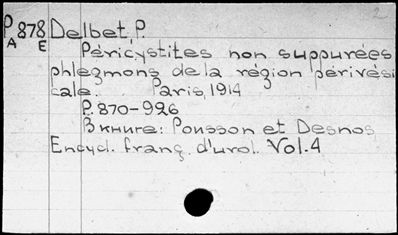 2
P 878 Delbet, P.
A E
Péricystites non suppurées
phlegmons de la région périvési
cale. Paris, 1914
P. 870-926
В книге: Pousson et Desnos
Encycl. franç. d'urol. Vol. 4